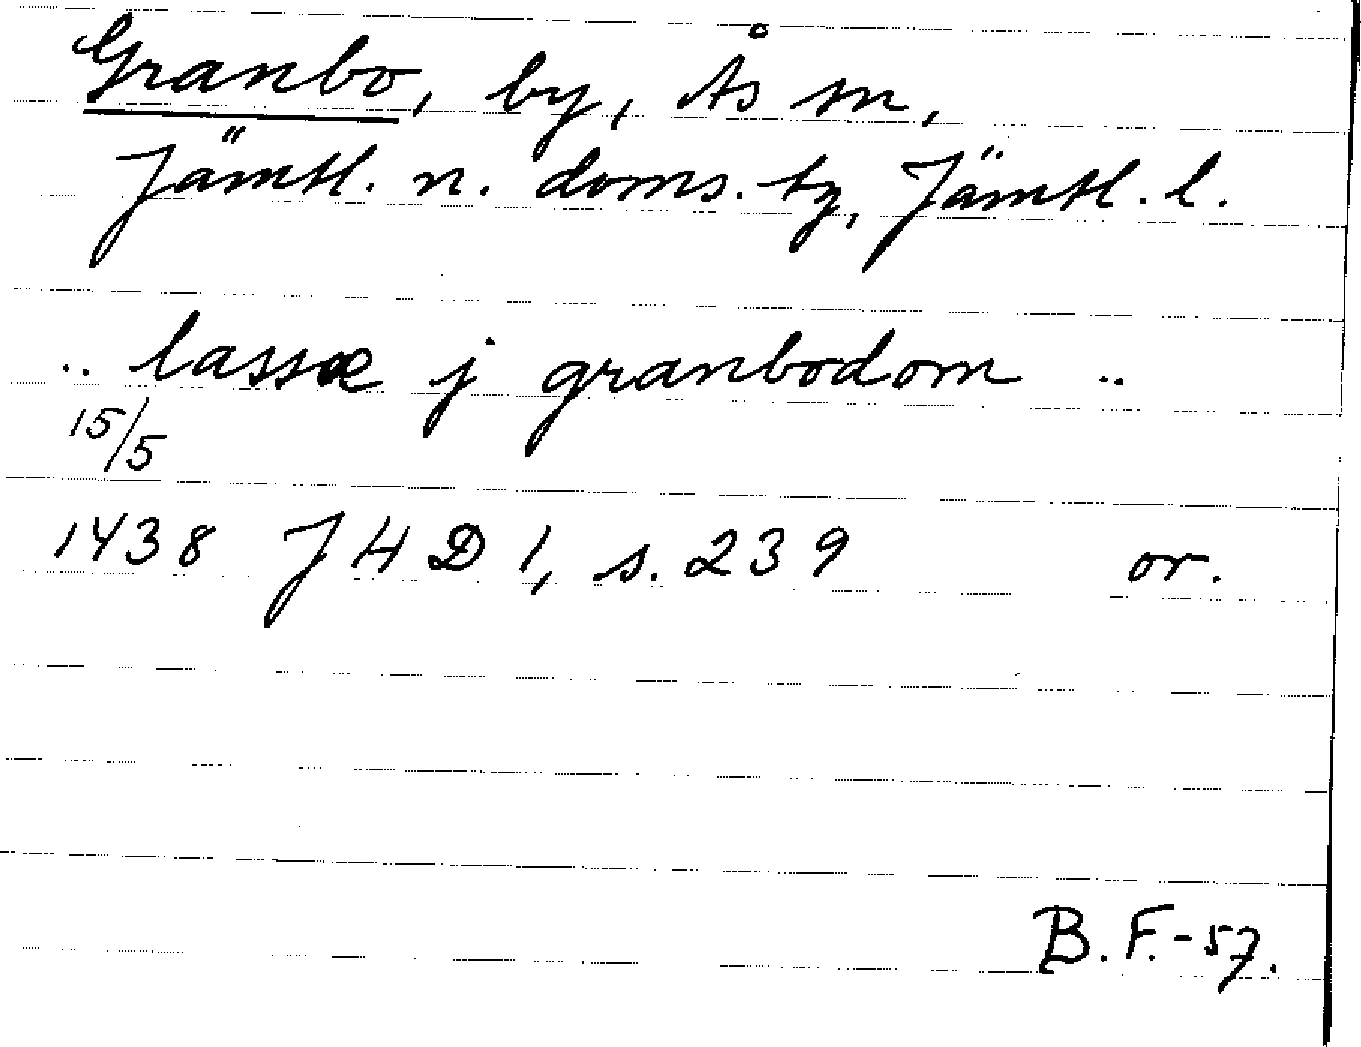 Granbo, by, Ås sn,
Jämtl. n. doms. tg, Jämtl. l.
.. lassæ j granbodom ..
15/5
1438 JHD 1, s. 239 or.
B.F.-57.